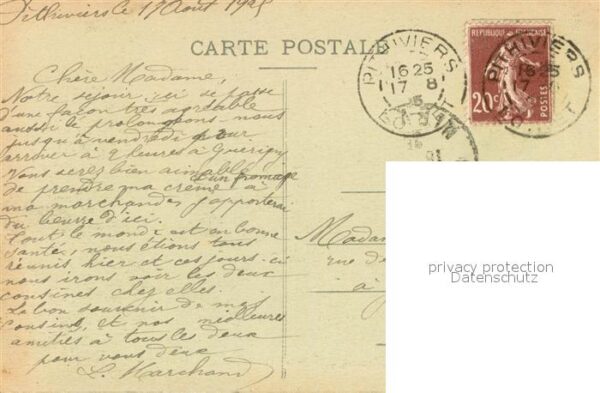 Pithiviers le 17 Août 1925
CARTE POSTALE
Chère Madame,
Notre séjour ici se passe
d'une façon très agréable
aussi le prolongeons-nous
jusqu'à vendredi pour
arriver à 2 heures à Guérigny
Vous serez bien aimable
de prendre ma crème à un fromage
ma marchande j'apporterai
du beurre d'ici.
Tout le monde est en bonne
santé, nous étions tous
réunis hier et ces jours-ci
nous irons voir les deux
cousines chez elles.
Le bon souvenir de mes
Cousins, et nos meilleures
amitiés à tous les deux
pour vous deux
L. Marchand
PITHIVIERS
16 25
17 8
REPUBLIQUE FRANÇAISE
20c
POSTES
PITHIVIERS
16 25
17
Madam
rue de
à
privacy protection
Datenschutz